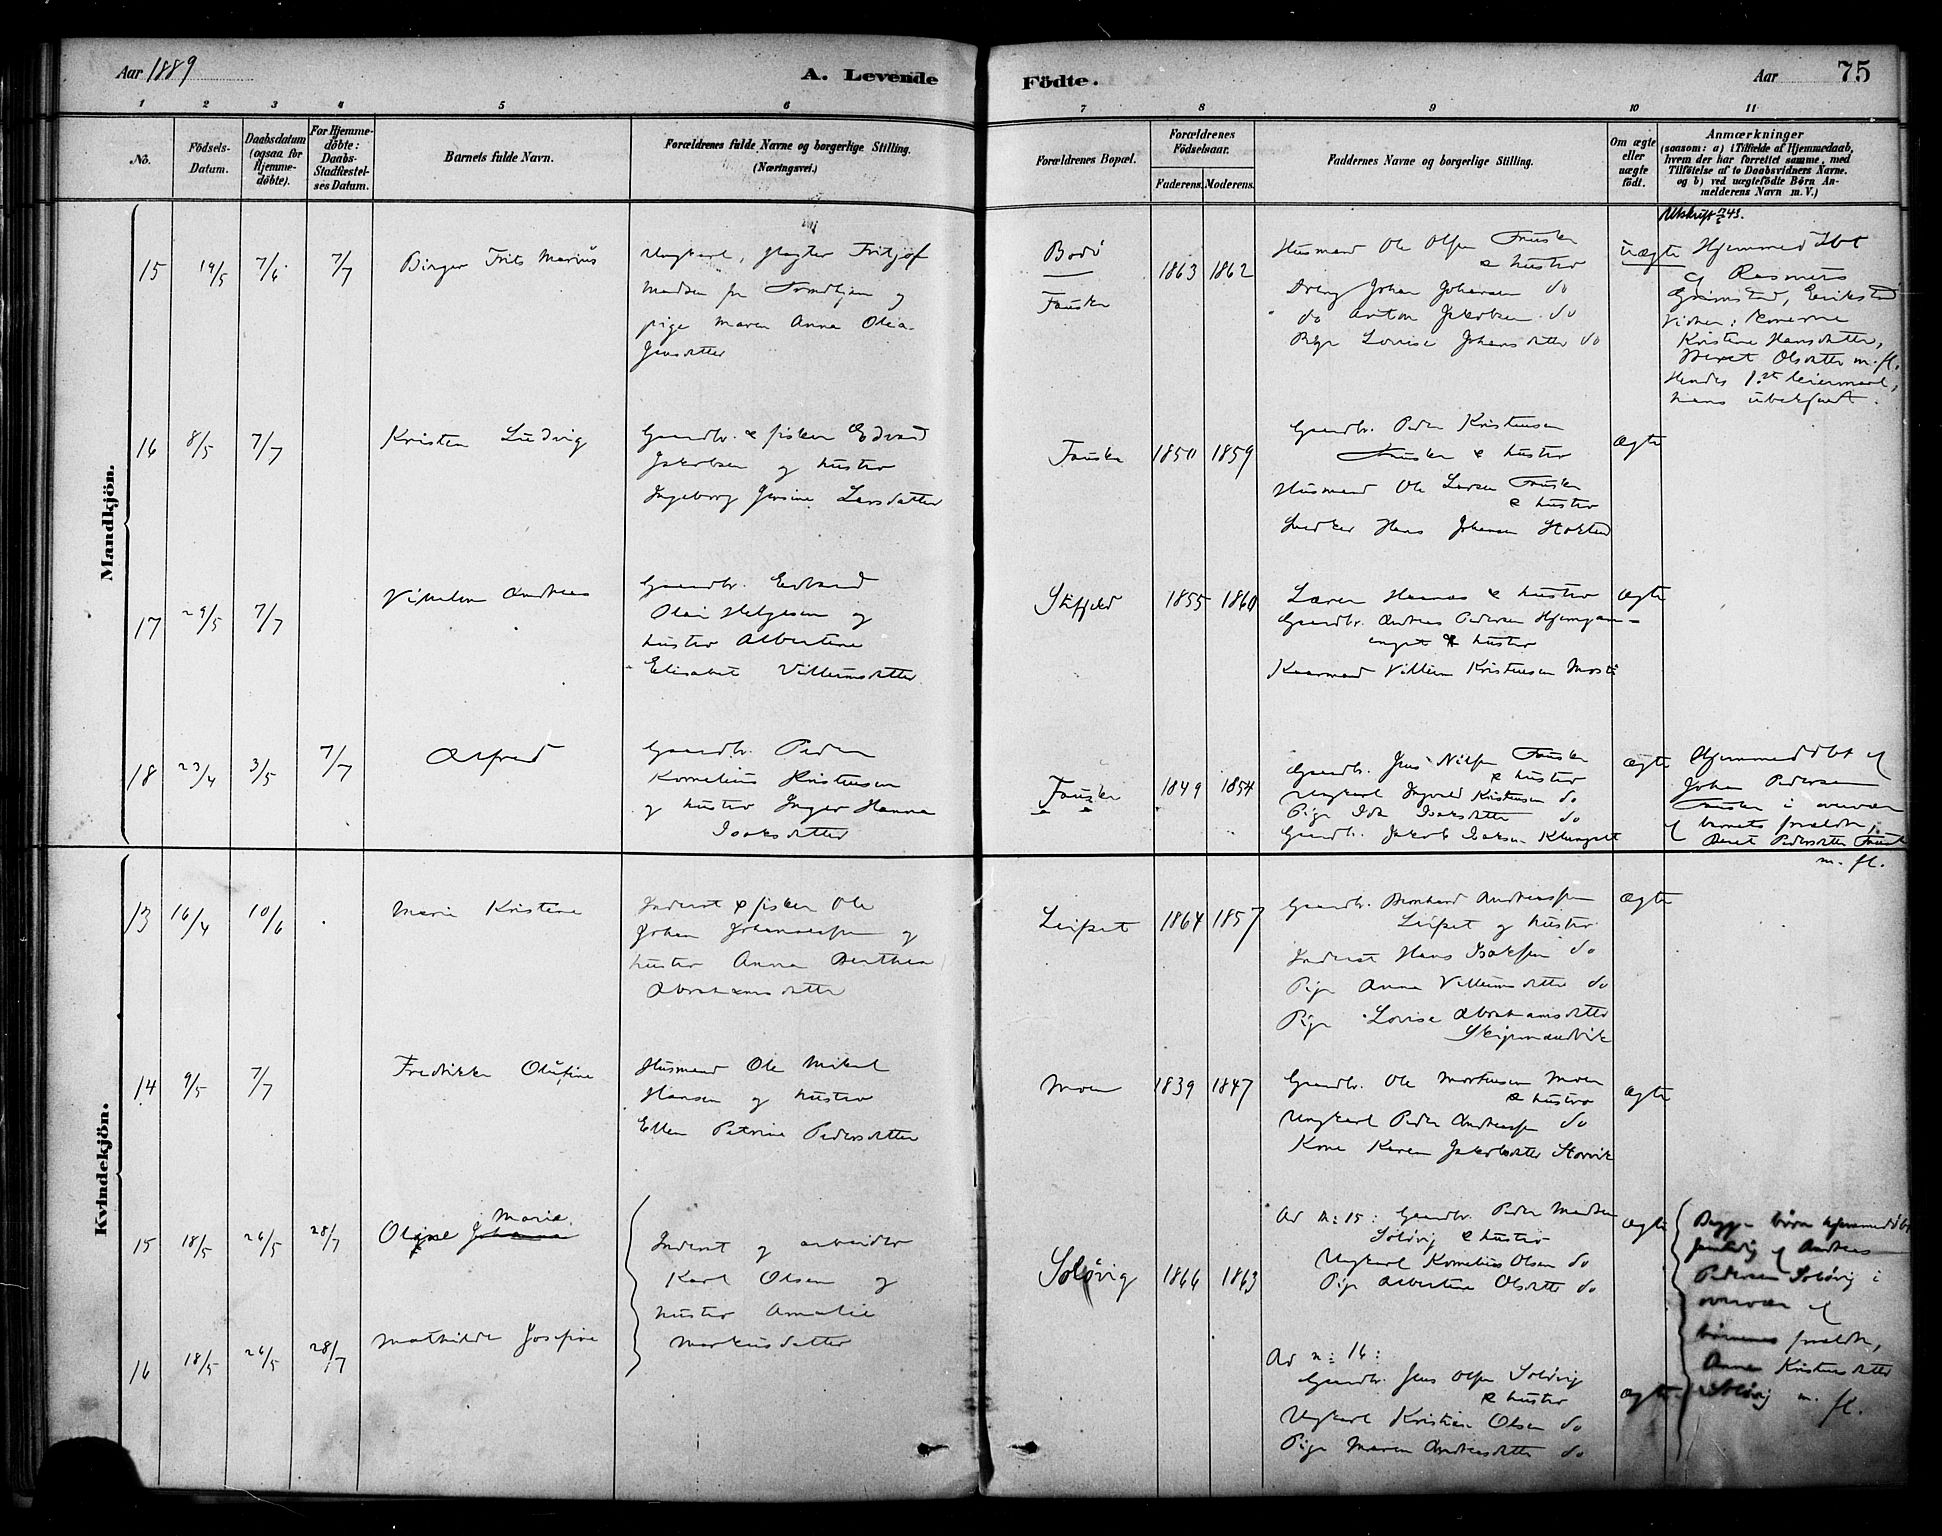 Aar 1889
A. Levende
Födte.
Aar
75
1 2 3 4 5 6 7 8 9 10 11
No.
Födsels-Datum.
Daabsdatum (ogsaa for Hjemme-döbte).
For Hjemme-döbte: Daabs-Stadfæstel-ses Datum.
Barnets fulde Navn.
Forældrenes fulde Navne og borgerlige Stilling.
(Næringsvei.)
Forældrenes Bopæl.
Forældrenes Födselsaar.
Faderens. Moderens.
Faddernes Navne og borgerlige Stilling.
Om ægte eller uægte födt.
Anmærkninger
(saasom: a) i Tilfælde af Hjemmedaab,
hvem der har forrettet samme, med
Tilföielse af to Daabsvidners Navne.
og b) ved uægtefödte Börn An-
melderens Navn m. V.)
Mandkjön.
15 19/5 7/6 7/7 Birger Frits Marius
Ungkarl, Fritjof
Madsen fra Trondhjem og
pige Maren Anna Olea
Jensdatter
Bodö
Fauske
1863 1862
Husmand Ole Olsen Fauske
& hustro
Dreng Johan Johansen do
do Anton Jakobsen do
Pige Lovise Johansdatter do
uægte
Hjemmedöbt
af Rasmus
Grimstad, Erikstad
Vidner: konerne
Kristine Hansdatter,
Beret Olsdatter m. fl.
Hendes 1ste leiermaal,
hans ubekjent.
16 8/5 7/7 Kristen Ludvig
Gaardbr. & fisker Edvard
Jakobsen og hustro
Ingeborg Jensine Larsdatter
Fauske 1850 1859
Gaardbr. Peder Kristensen
Fauske & hustro
Husmand Ole Larsen Fauske
& hustro
Snedker Hans Johansen
ægte
17 29/5 7/7 Vilhelm Andreas
Gaardbr. Edvard
Olai Helgesen og
hustro Albertine
Elisabet Villumsdatter
1855 1860
Lærer & hustro
Gaardbr. Andreas Pedersen Hjemgam-
& hustro
Villum Kristensen
ægte
18 23/4 3/5 7/7 Alfred
Gaardbr. Peder
Kornelius Kristensen
og hustro Inger Hanna
Isaksdatter
Fauske 1849 1854
Gaardbr. Jens Nilsen Fauske
& hustro
Ungkarl Ingvald Kristensen do
Pige Ida Isaksdatter do
Gaardbr. Jakob Isaksen Klungset
ægte
Hjemmedöbt af
Johan Pedersen
Fauske i overvær
af barnets forældre,
Beret Pedersdatter Fauske
m. fl.
Kvindekjön.
13 16/4 10/6 Marie Kristine
Inderst & fisker Ole
Johan Johannessen og
hustro Anna Berthea
Abrahamsdatter
Leifset 1864 1857
Gaardbr. Bernhard Andreassen
Leifset og hustro
Inderst Hans Isaksen do
Pige Anna Villumsdatter do
Pige Lovise Abrahamsdatter
ægte
14 9/5 7/7 Fredrikke Olufine
Husmand Ole Mikal
Hansen og hustro
Ellen Petrine Pedersdatter
Moen 1839 1847
Gaardbr. Ole Mortensen Moen
& hustro
Ungkarl Peder Andreassen do
Kone Karen Jakobsdatter Storvik
ægte
15 18/5 26/5 28/7
Marie
16 18/5 26/5 28/7 Mathilde Josefine
Inderst og arbeider
Karl Olsen og
hustro Amalie
Markusdatter
Solövig 1866 1863
Ad n: 15: Gaardbr. Peder Madsen
Solövig & hustro
Ungkarl Kornelius Olsen do
Pige Albertine Olsdatter do
ægte
Ad n: 16:
Gaardbr. Jens Olsen Solövig
& hustro
Ungkarl Kristian Olsen do
Pige Maren Andreasdatter do
ægte
Begge börn hjemmedöbt
samtidig af Andreas
Pedersen Solövig i
overvær af
börnenes forældre,
Anne Kristensdatter
Solövig m. fl.